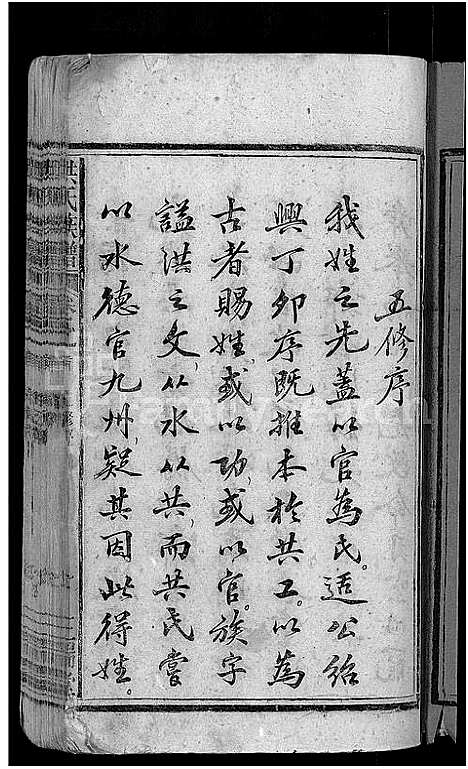 五修序
我姓之先蓋以官為氏。适公紹
興丁卯序既推本於共工。以為
古者賜姓、或以功、或以官。族字
謚洪之文、从水从共、而共氏嘗
以水德官九州、疑其因此得姓。
洪氏族譜